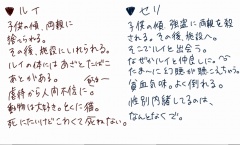 ♥ルイ
子供の頃、両親に
捨てられる。
その後、施設にいれられる。
ルイの体にはあざとたばこ
あとがある。
虐待から人間不信に。
動物は大好き。とくに猫。
死にたいけどこわくて死ねない。
♥セリ
子供の頃、強盗に両親を殺
される。その後、施設へ。
そこでルイと出会う。
なぜかルイと仲良しに。
たまーに幻聴が聴こえちゃう。
貧血気味。よく倒れる。
性別内緒にしてるのは、
なんとなくで。